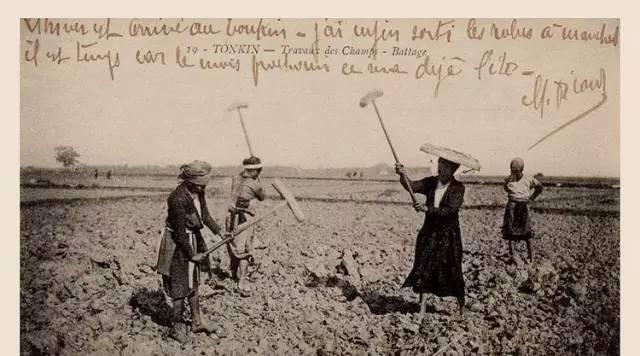 L'hiver est arrivé au Tonkin — j'ai enfin sorti les robes à manches
19 - TONKIN — Travaux des Champs - Battage
il est temps car le mois prochain ce sera déjà l'été —
M. Picard